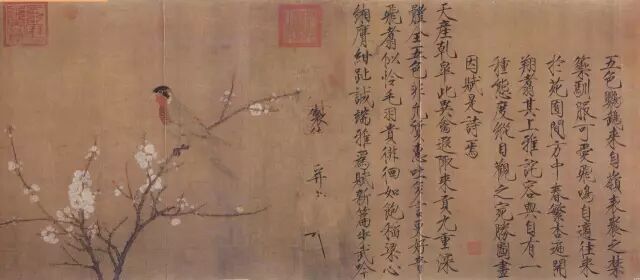 五色鸚鵡來自嶺表養之禁
籞馴服可愛飛鳴自適往來
於苑囿間方中春繁杏遍開
翔翥其上雅詫容與自有一
種態度縱目觀之宛勝圖畫
因賦是詩焉
天產乾皋此異禽遐陬來貢九重深
體全五色非凡質惠吐多言更好音
飛翥似怜毛羽貴徘徊如飽稻粱心
緗膺紺趾誠端雅為賦新篇步武吟
製 并